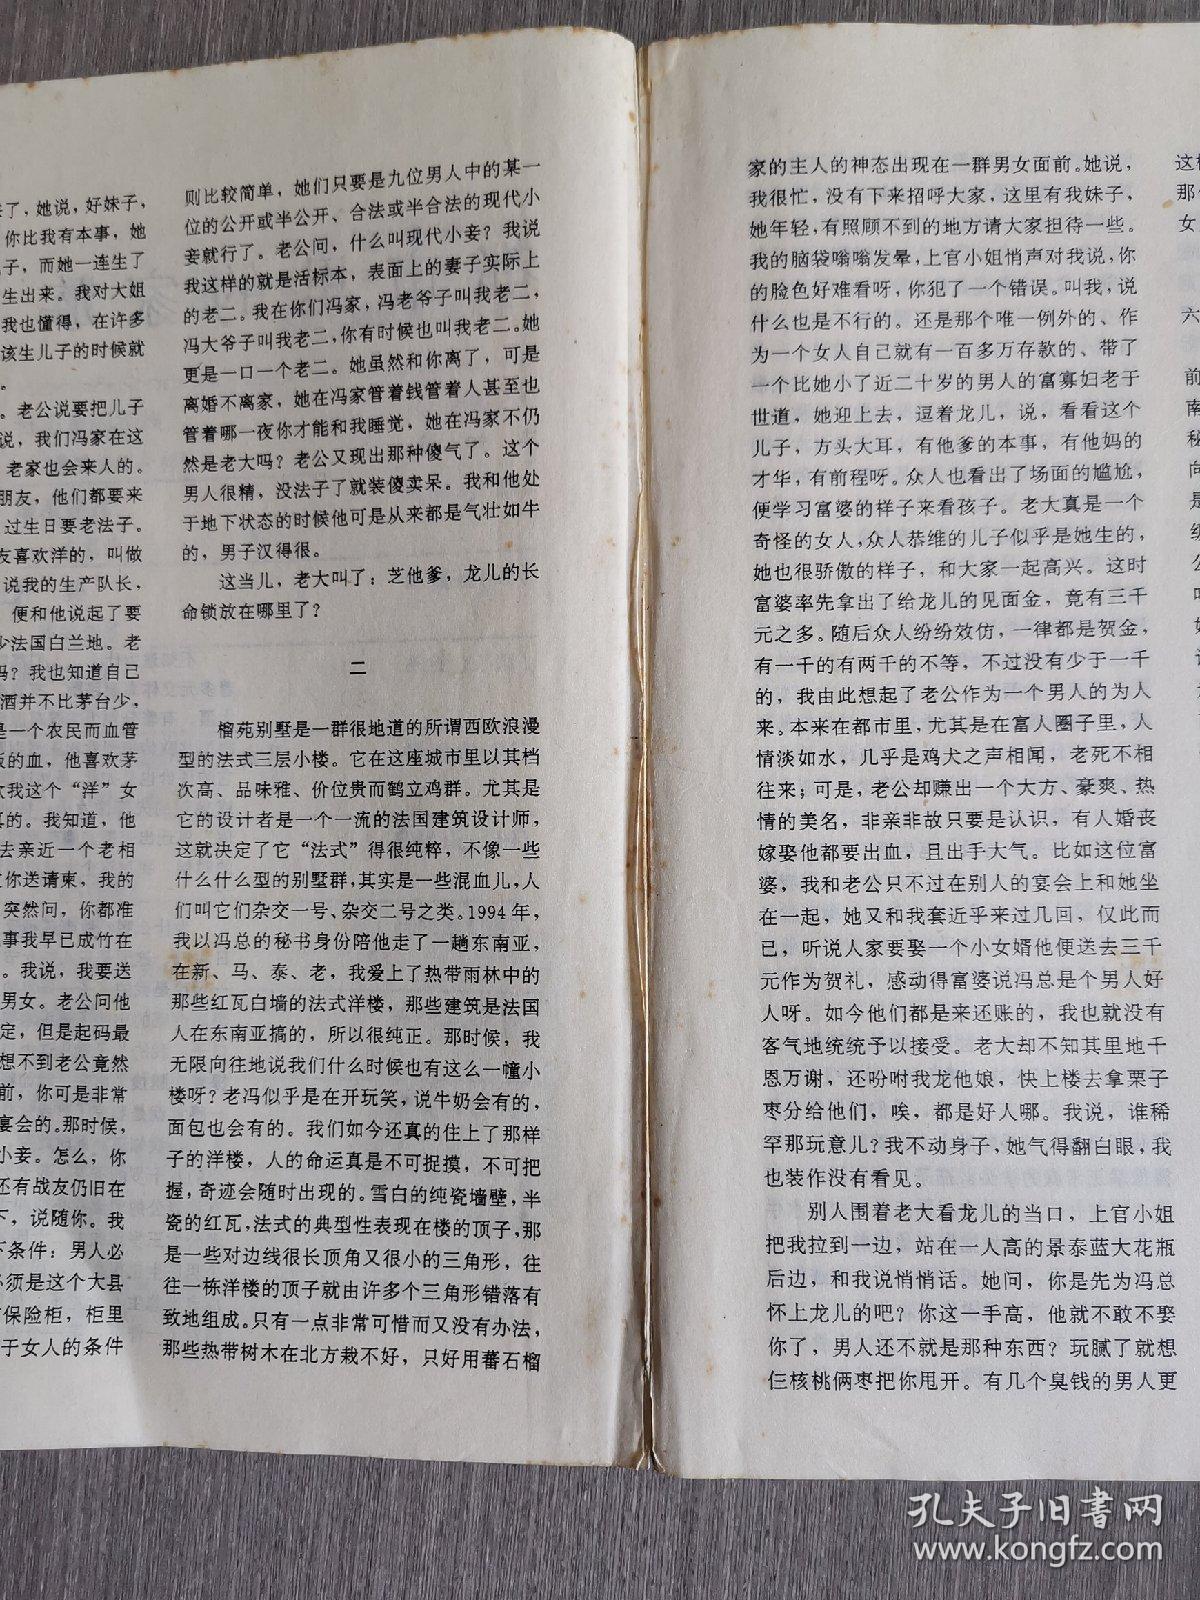 去了，她说，好妹子，
你比我有本事，她
子，而她一连生了
生出来。我对大姐
我也懂得，在许多
该生儿子的时候就
。
。老公说要把儿子
说，我们冯家在这
老家也会来人的。
朋友，他们都要来
过生日要老法子。
友喜欢洋的，叫做
说我的生产队长，
便和他说起了要
少法国白兰地。老
吗？我也知道自己
酒并不比茅台少，
是一个农民而血管
的血，他喜欢茅
我这个“洋”女
真的。我知道，他
去亲近一个老相
你送请柬，我的
突然问，你都准
事我早已成竹在
。我说，我要送
男女。老公问他
定，但是起码最
想不到老公竟然
前，你可是非常
宴会的。那时候，
小妾。怎么，你
还有战友仍旧在
下，说随你。我
下条件：男人必
必须是这个大县
保险柜，柜里
于女人的条件
则比较简单，她们只要是九位男人中的某一
位的公开或半公开、合法或半合法的现代小
妾就行了。老公问，什么叫现代小妾？我说
我这样的就是活标本，表面上的妻子实际上
的老二。我在你们冯家，冯老爷子叫我老二，
冯大爷子叫我老二，你有时候也叫我老二。她
更是一口一个老二。她虽然和你离了，可是
离婚不离家，她在冯家管着钱管着人甚至也
管着哪一夜你才能和我睡觉，她在冯家不仍
然是老大吗？老公又现出那种傻气了。这个
男人很精，没法子了就装傻卖呆。我和他处
于地下状态的时候他可是从来都是气壮如牛
的，男子汉得很。
这当儿，老大叫了；芝他爹，龙儿的长
命锁放在哪里了？
二
榴苑别墅是一群很地道的所谓西欧浪漫
型的法式三层小楼。它在这座城市里以其档
次高、品味雅、价位贵而鹤立鸡群。尤其是
它的设计者是一个一流的法国建筑设计师，
这就决定了它“法式”得很纯粹，不像一些
什么什么型的别墅群，其实是一些混血儿，人
们叫它们杂交一号、杂交二号之类。1994年，
我以冯总的秘书身份陪他走了一趟东南亚，
在新、马、泰、老，我爱上了热带雨林中的
那些红瓦白墙的法式洋楼，那些建筑是法国
人在东南亚搞的，所以很纯正。那时候，我
无限向往地说我们什么时候也有这么一幢小
楼呀？老冯似乎是在开玩笑，说牛奶会有的，
面包也会有的。我们如今还真的住上了那样
子的洋楼，人的命运真是不可捉摸，不可把
握，奇迹会随时出现的。雪白的纯瓷墙壁，半
瓷的红瓦，法式的典型性表现在楼的顶子，那
是一些对边线很长顶角又很小的三角形，往
往一栋洋楼的顶子就由许多个三角形错落有
致地组成。只有一点非常可惜而又没有办法，
那些热带树木在北方栽不好，只好用蕃石榴
家的主人的神态出现在一群男女面前。她说，
我很忙，没有下来招呼大家，这里有我妹子，
她年轻，有照顾不到的地方请大家担待一些。
我的脑袋嗡嗡发晕，上官小姐悄声对我说，你
的脸色好难看呀，你犯了一个错误。叫我，说
什么也是不行的。还是那个唯一例外的、作
为一个女人自己就有一百多万存款的、带了
一个比她小了近二十岁的男人的富寡妇老于
世道，她迎上去，逗着龙儿，说，看看这个
儿子，方头大耳，有他爹的本事，有他妈的
才华，有前程呀。众人也看出了场面的尴尬，
便学习富婆的样子来看孩子。老大真是一个
奇怪的女人，众人恭维的儿子似乎是她生的，
她也很骄傲的样子，和大家一起高兴。这时
富婆率先拿出了给龙儿的见面金，竟有三千
元之多。随后众人纷纷效仿，一律都是贺金，
有一千的有两千的不等，不过没有少于一千
的，我由此想起了老公作为一个男人的为人
来。本来在都市里，尤其是在富人圈子里，人
情淡如水，几乎是鸡犬之声相闻，老死不相
往来；可是，老公却赚出一个大方、豪爽、热
情的美名，非亲非故只要是认识，有人婚丧
嫁娶他都要出血，且出手大气。比如这位富
婆，我和老公只不过在别人的宴会上和她坐
在一起，她又和我套近乎来过几回，仅此而
已，听说人家要娶一个小女婿他便送去三千
元作为贺礼，感动得富婆说冯总是个男人好
人呀。如今他们都是来还账的，我也就没有
客气地统统予以接受。老大却不知其里地千
恩万谢，还吩咐我龙他娘，快上楼去拿栗子
枣分给他们，唉，都是好人哪。我说，谁稀
罕那玩意儿？我不动身子，她气得翻白眼，我
也装作没有看见。
别人围着老大看龙儿的当口，上官小姐
把我拉到一边，站在一人高的景泰蓝大花瓶
后边，和我说悄悄话。她问，你是先为冯总
怀上龙儿的吧？你这一手高，他就不敢不娶
你了，男人还不就是那种东西？玩腻了就想
仨核桃俩枣把你甩开。有几个臭钱的男人更
这
那
女
六
前
南
秘
向
是
公
孔夫子旧书网
www.kongfz.com